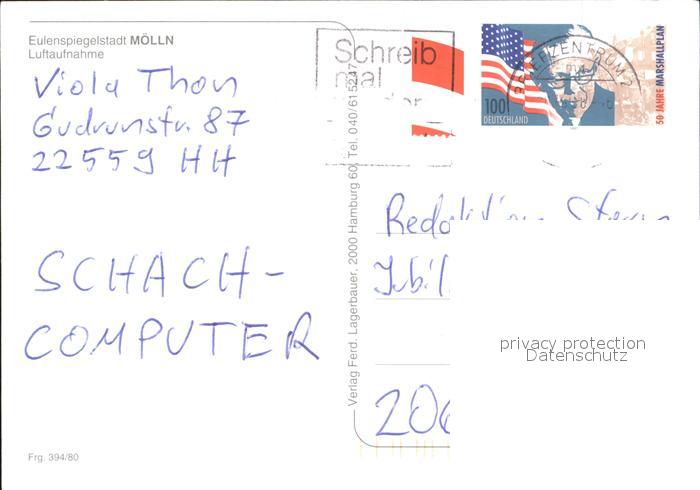 Eulenspiegelstadt MÖLLN
Luftaufnahme
Viola Thon
Gudrunstr. 87
22559 HH
SCHACH-
COMPUTER
Frg. 394/80
Verlag Ferd. Lagerbauer, 2000 Hamburg 60, Tel. 040/615247
Schreib
mal
100
DEUTSCHLAND
50 JAHRE MARSHALLPLAN
BRIEFZENTRUM
Redaktion Stern
Jubil
206
privacy protection
Datenschutz